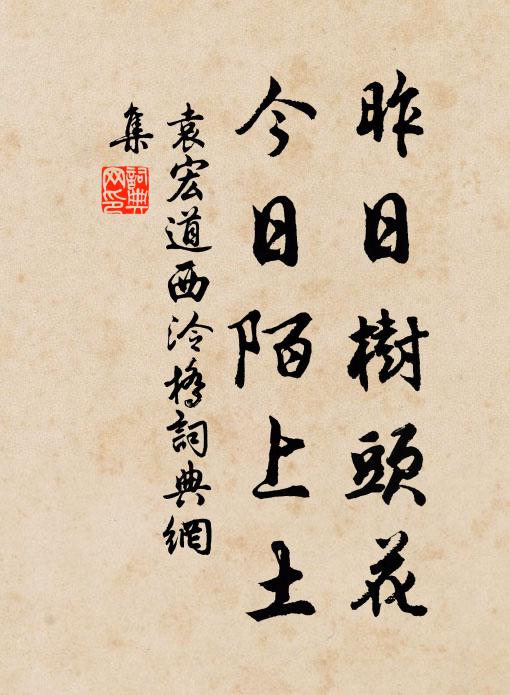 昨日樹頭花
今日陌上土
袁宏道西泠橋詞典網
集
詞典
网印